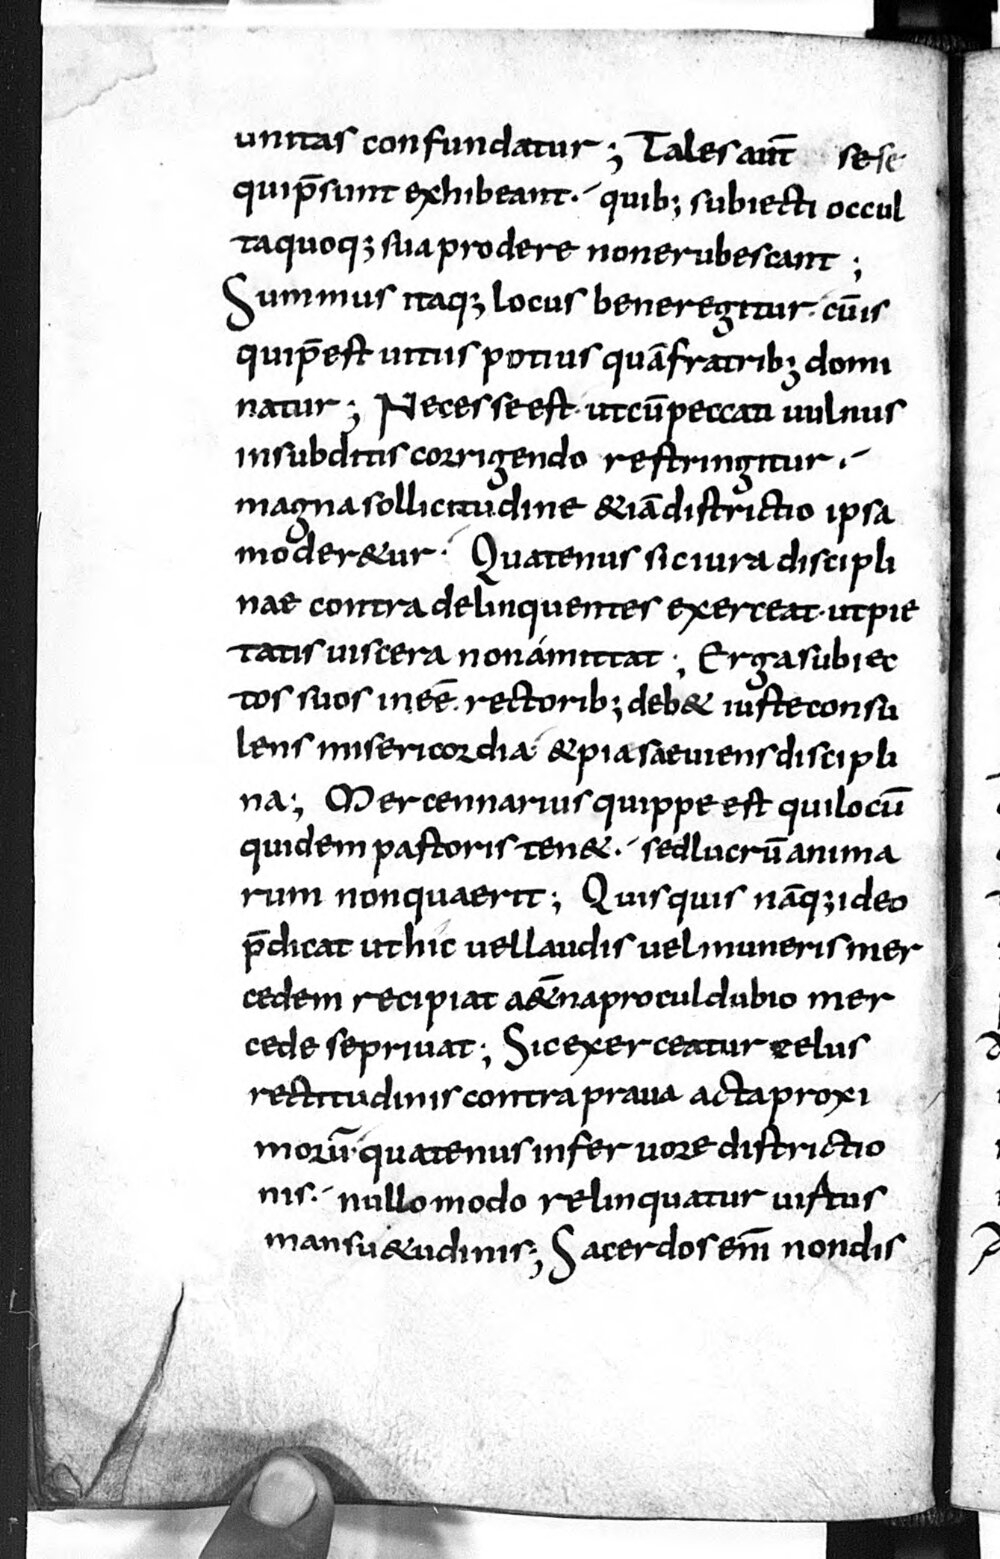 unitas confundatur; Tales aut̄ sese
qui p̄sunt exhibeant. quib; subiecti occul
ta quoq; sua prodere non erubescant;
Summus itaq; locus bene regitur. cū is
qui p̄est uitiis potius quā fratrib; domi
natur; Necesse est. ut cū peccati uulnus
in subditis corrigendo restringitur.
magna sollicitudine & iā districtio ipsa
moder&ur. Quatenus sic iura discipli
nae contra delinquentes exerceat. ut pie
tatis uiscera non amittat; Erga subiec
tos suos inēē. rectorib; deb& iuste consu
lens misericordia & pia saeuiens discipli
na; Mercennarius quippe est qui locū
quidem pastoris ten&. sed lucrū anima
rum non quaerit; Quisquis nāq; ideo
p̄dicat ut hic uel laudis uel muneris mer
cedem recipiat a&̄na procul dubio mer
cede se priuat; Sic exerceatur zelus
rectitudinis contra praua acta proxi
morū. quatenus in feruore districtio
nis. nullo modo relinquatur uirtus
mansu&udinis; Sacerdos em̄ non dis